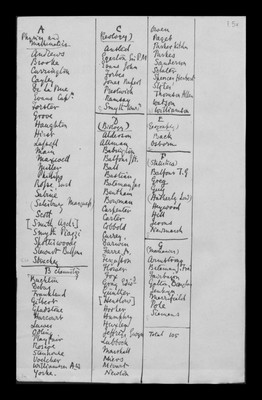 A
Physics and
Mathematics.
Andrews
Brooke
Carrington
Cayley
De La Rue
Jones Capt.
Forster
Grove
Haughton
Hirst
Lassell
Main
Maxwell
Miller
Phillips
Sabine
Salisbury Marquis of
Scott
[Smith Archd.]
Smyth Piazzi
Spottiswoode
Stewart Balfour
Strachey
B Chemistry
Brighton
Debus
Frankland
Gilbert
Gladstone
Harcourt
Lawes
Odling
Playfair
Roscoe
Stenhouse
Voelcker
Williamson A.W.
Yorke.
C
(Geology)
Austed
Egerton Sir P. M.
Evans John
Forbes
Jones Rupert
Prestwich
Ramsay
D
(Biology)
Alderson
Allman
Babington
Balfour J.H.
Ball
Bastian
Bateman Jas
Bentham
Bowman
Carpenter
Carter
Cobbold
Currey
Darwin
Farre A.
Ferguson
Flower
Fox
Gray
Gunther
[Henslow]
Hooker
Humphry
Huxley
Jeffreys Gwyn
Lubbock
Marshall
Mivart
Newton
Owen
Paget
Parker Kitchen
Parkes
Sanderson
Sclater
Spencer Herbert
Stokes
Thomson Allen
Watson
Williamson
E
(Geography)
Back
Osborn
F
(Statistics)
Balfour T.G
Gray
Guy
Heywood
Hill
Jevons
Newmarch
G
(Mechanics)
Armstrong
Bateman J. Fred.
Fairbairn
Galton Douglas
Merrifield
Pole
Siemens
Total 105